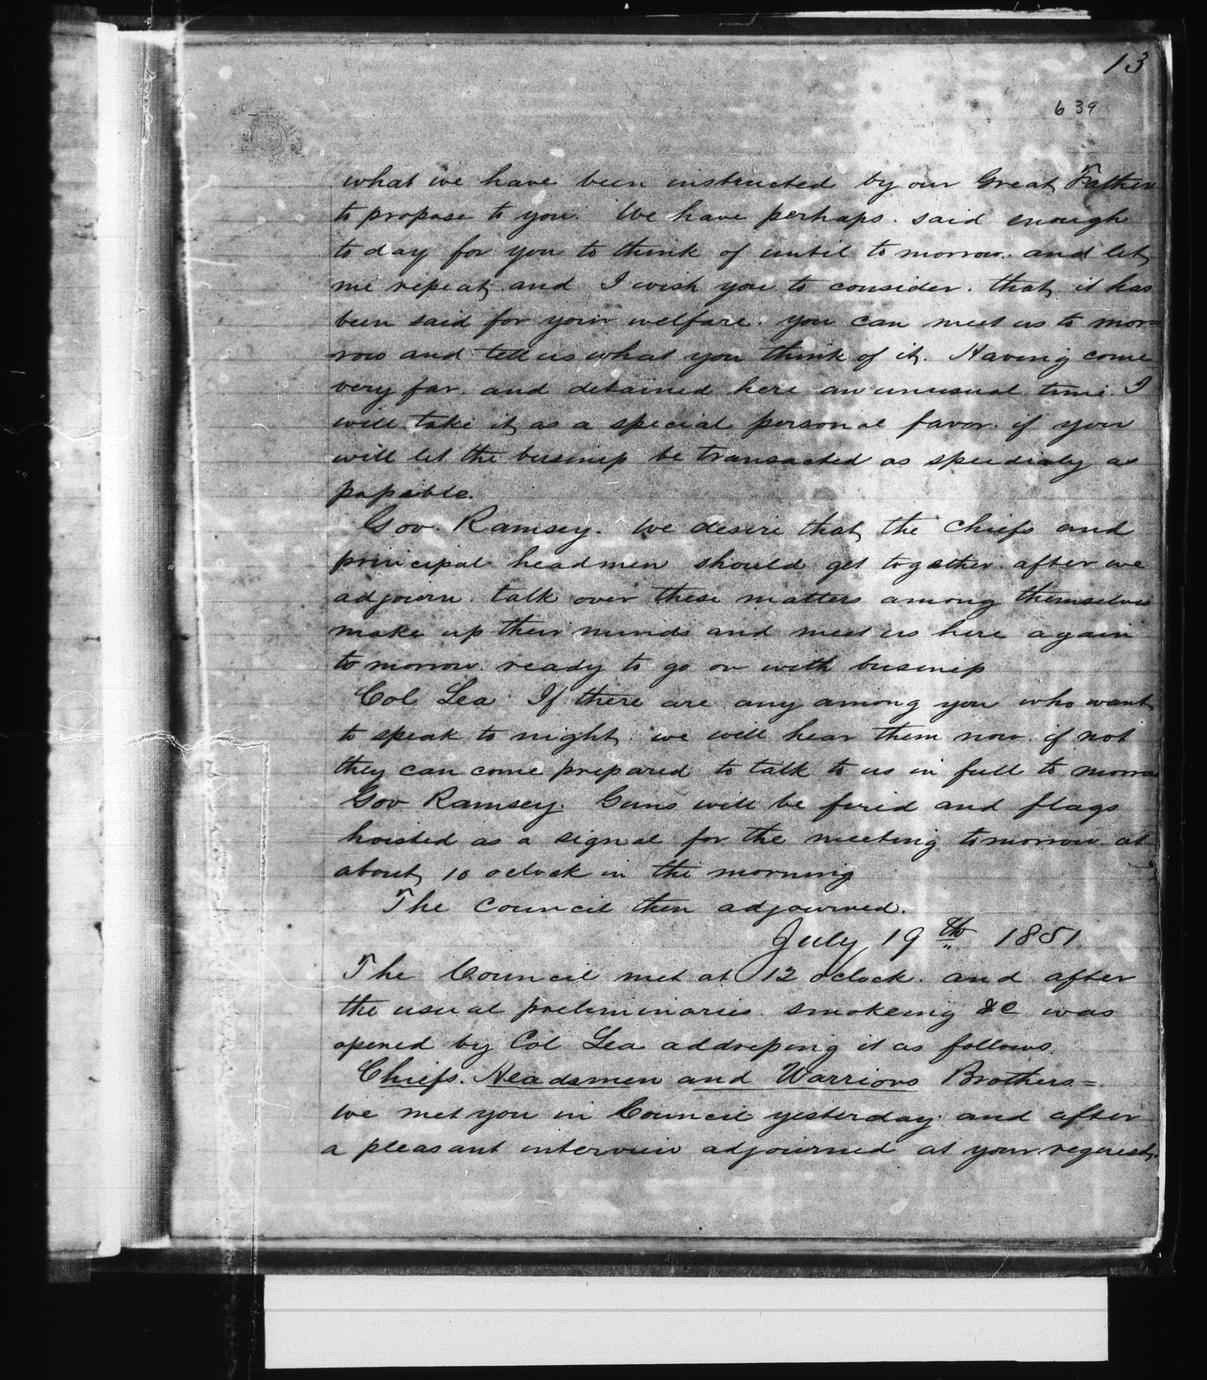 13
639
what we have been instructed by our Great Father
to propose to you. We have perhaps. said enough
to day for you to think of until to morrow. and let
me repeat, and I wish you to consider. that, it has
been said for your welfare. you can meet us to mor=
row and tell us what you think of it. Having come
very far. and detained here an unusual time. I
will take it, as a special personal favor. if you
will let the business be transacted as speedialy as
possible.
Gov. Ramsey. We desire that, the Chiefs and
principal headmen should get together. after we
adjourn. talk over these matters among themselves
make up their minds and meet us here again
to morrow. ready to go on with business
Col Lea If there are any among you who want,
to speak to night, we will hear them now. if not
they can come prepared to talk to us in full to morrow
Gov Ramsey. Guns will be fired and flags
hoisted as a signal for the meeting tomorrow at
about, 10 oclock in the morning
The Council then adjourned.
July 19th 1851
The Council met at 12 oclock. and after
the usual preliminaries. smokeing &c was
opened by Col Lea addressing it as follows.
Chiefs. Headsmen and Warriors Brothers=
We met you in Council yesterday. and after
a pleasant interview adjourned at your request,